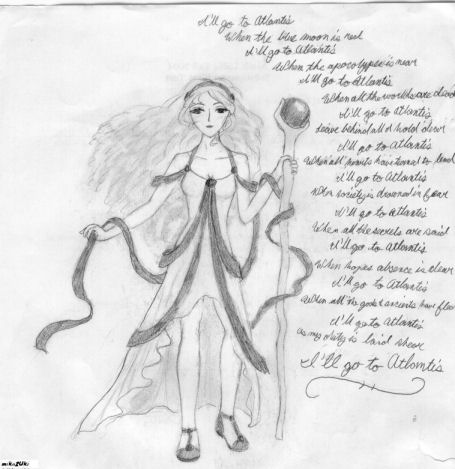 I'll go to Atlantis
When the blue moon is red
I'll go to Atlantis
When the apocolypse is near
I'll go to Atlantis
When all the worlds are dead
I'll go to Atlantis
Leave behind all I hold dear
I'll go to Atlantis
When all hearts have turned to lead
I'll go to Atlantis
When society is drowned in fear
I'll go to Atlantis
When all the secrets are said
I'll go to Atlantis
When hopes absence is clear
I'll go to Atlantis
When all the gods & ancients have fled
I'll go to Atlantis
As my is laid
I'll go to Atlantis